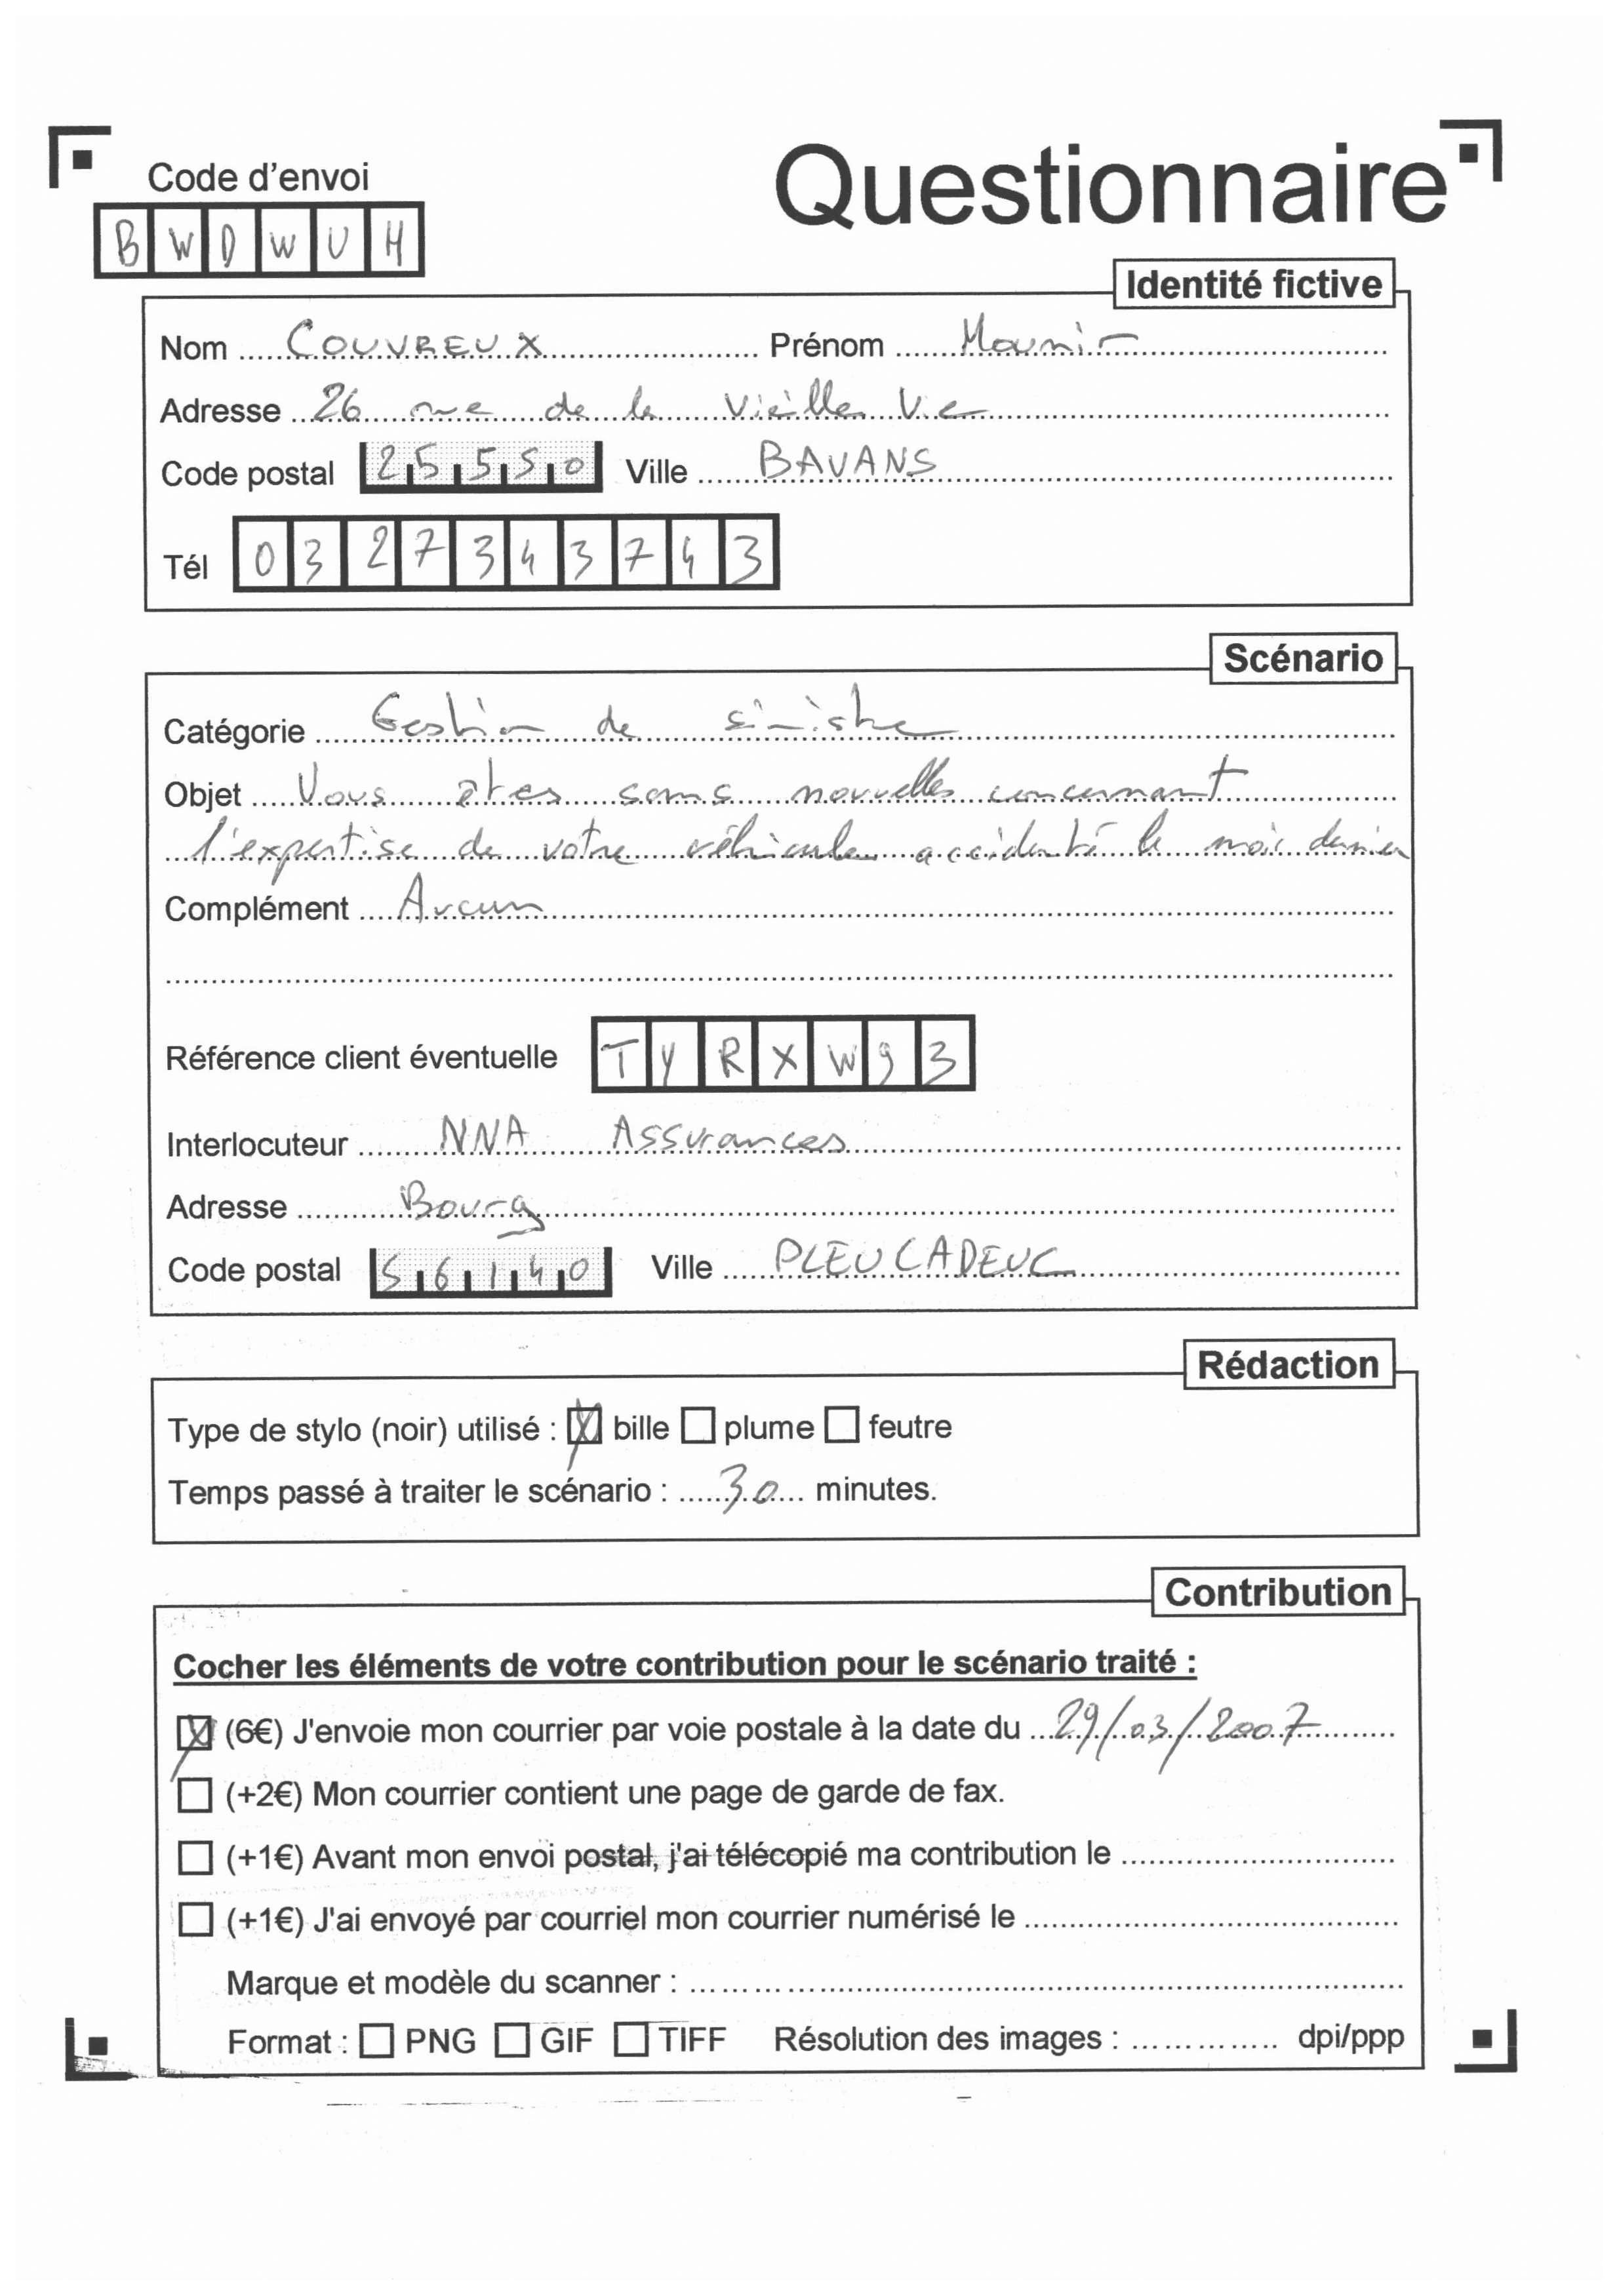 Questionnaire
Code d'envoi
B W D W U H
Identité fictive
Nom COUVREUX Prénom Mounir
Adresse 26 rue de la Vieille Vie
Code postal 25550 Ville BAVANS
Tél 0327343743
Scénario
Catégorie Gestion de sinistre
Objet Vous êtes sans nouvelles concernant
l'expertise de votre véhicule accidenté le mois dernier
Complément Aucun
Référence client éventuelle TYRXW93
Interlocuteur NNA Assurances
Adresse Bourg
Code postal 56140 Ville PLEUCADEUC
Rédaction
Type de stylo (noir) utilisé : bille plume feutre
Temps passé à traiter le scénario : 30 minutes.
Contribution
Cocher les éléments de votre contribution pour le scénario traité :
(6€) J'envoie mon courrier par voie postale à la date du 29/03/2007
(+2€) Mon courrier contient une page de garde de fax.
(+1€) Avant mon envoi postal, j'ai télécopié ma contribution le
(+1€) J'ai envoyé par courriel mon courrier numérisé le
Marque et modèle du scanner :
Format : PNG GIF TIFF Résolution des images : dpi/ppp